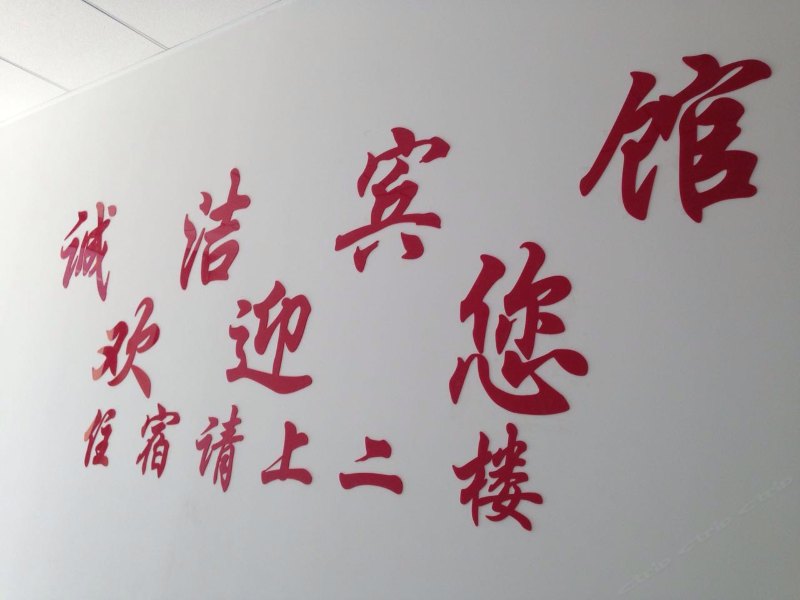 诚洁宾馆
欢迎您
住宿请上二楼
ctrip ctrip ctrip